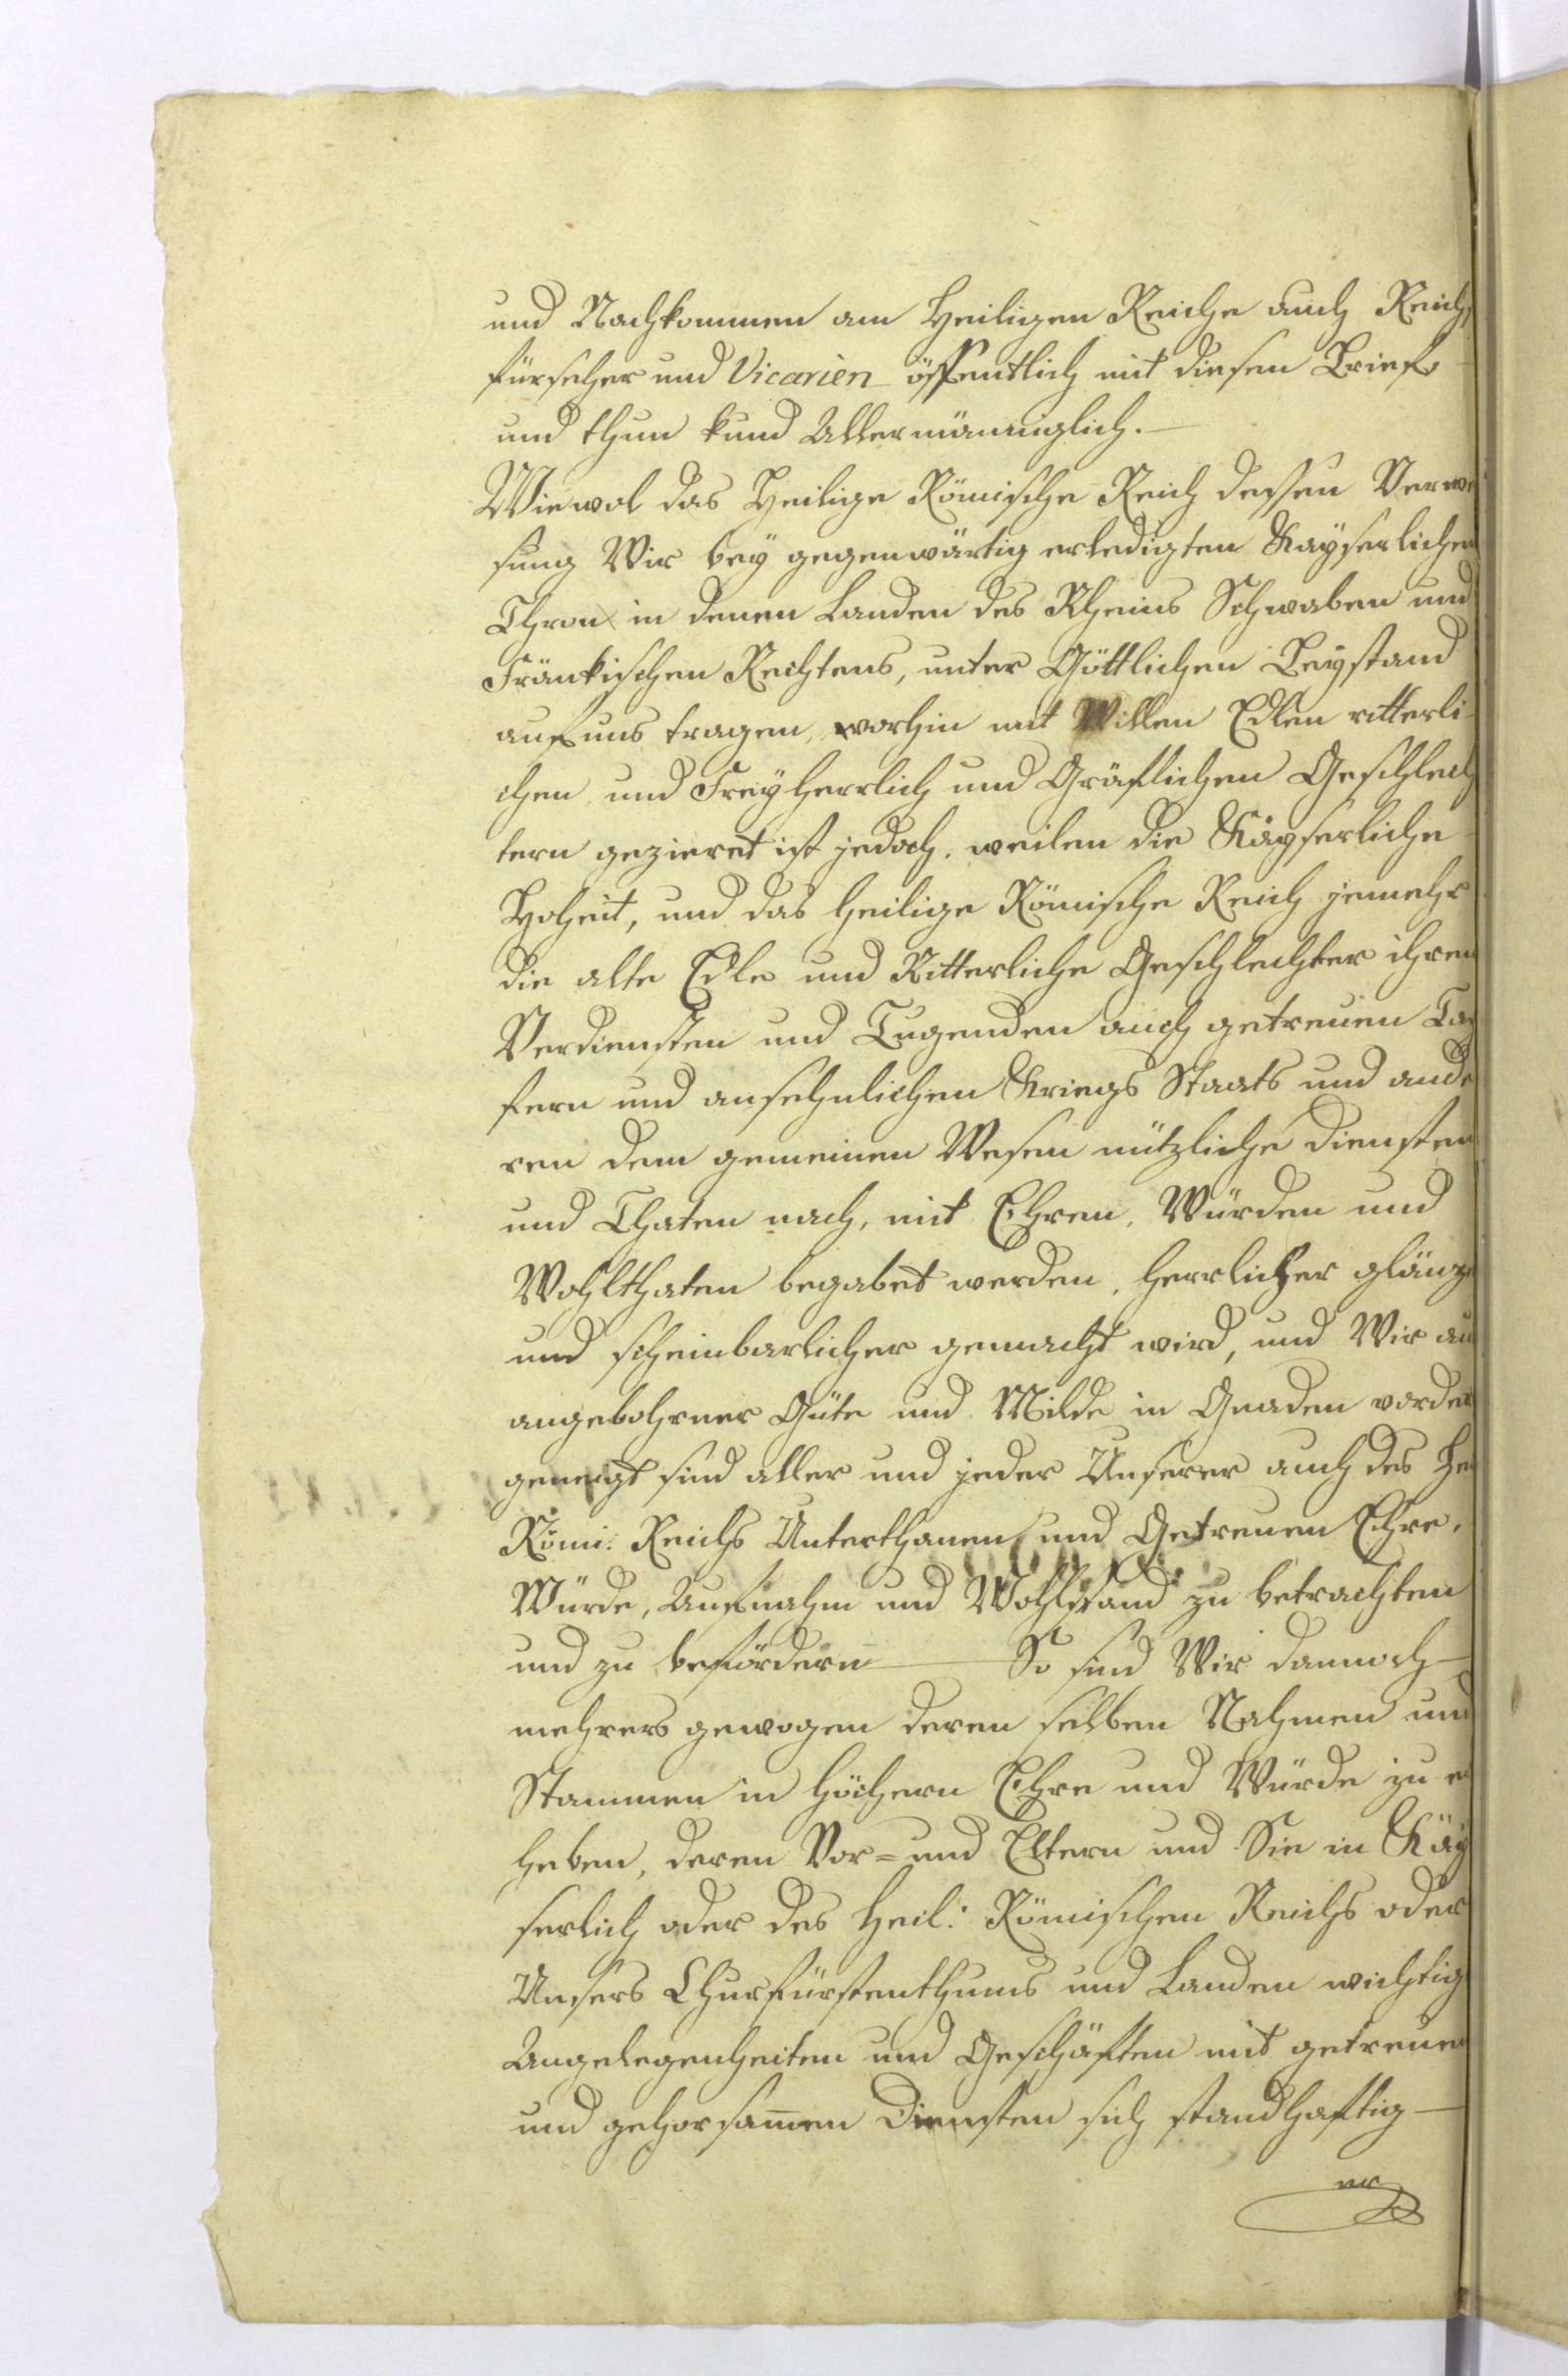 und Nachkommen am Heiligen Reiche auch Reichs
fürseher und Vicarien öffentlich mit diesen Brief
und thun kund Allermänniglich.
Wiewol das Heilige Römische Reich dessen Verwe
sung Wir bey gegenwärtig erledigten Kayserlichen
Thron in denen Landen des Rheins Schwaben und
Fränkischen Rechtens, unter Göttlichen Beystand
auf uns tragen, vorhin mit Villen Edlen ritterli
chen und Freyherrlich und Gräflichen Geschlech
tern gezieret ist jedoch, weilen die Kayserliche
Hoheit, und das heilige Römische Reich jemehr
die alte Edle und Ritterliche Geschlechter ihren
Verdiensten und Tugenden auch getreuen Tap
fern und ansehnlichen Kriegs Staats und ande
ren dem gemeinen Wesen nützliche Diensten
und Thaten nach, mit Ehren, Würden und
Wohlthaten begabet werden, herrlicher glänze
und scheinbarlicher gemacht wird, und Wir au
angebohrner Güte und Milde in Gnaden vorder
geneigt sind aller und jeder Unserer auch des He
Römi: Reichs Unterthanen und Getreuen Ehre,
Würde, Aufnahm und Wohlstand zu betrachten
und zu befördern So sind Wir dannoch
mehrers gewogen deren selben Nahmen und
Stammen in höchern Ehre und Würde zu er
heben, deren Vor= und Eltern und Sie in Kay
serlich oder des Heil: Römischen Reichs oder
Unsers Churfürstenthums und Landen wichtig
Angelegenheiten und Geschäften mit getreuen
und gehorsam̅en Diensten sich standhaftig
er